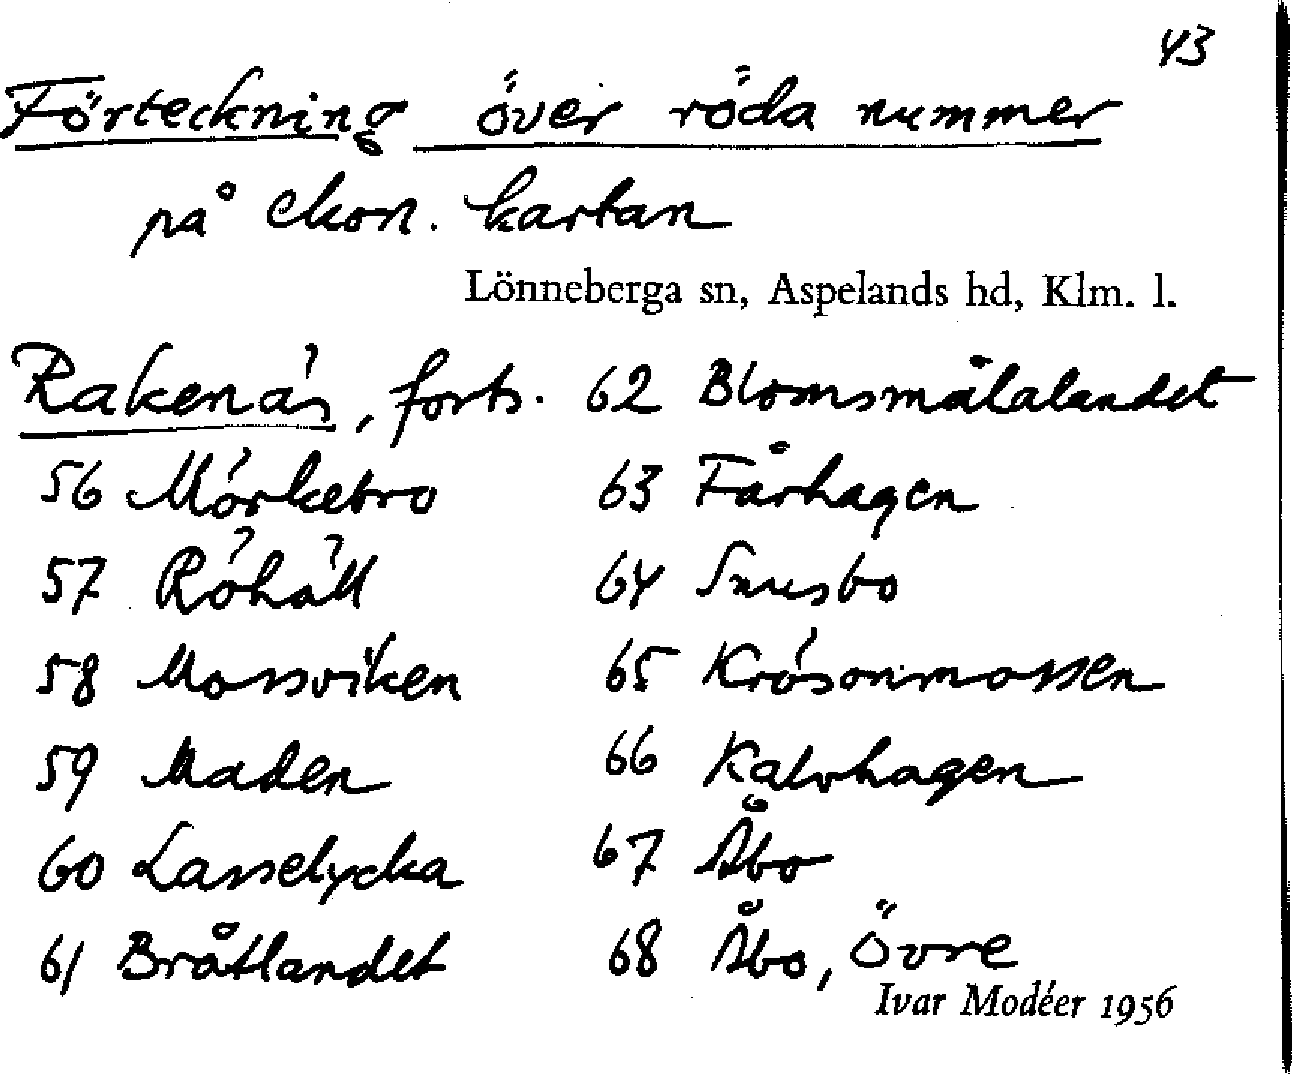 43
Förteckning över röda nummer
på ekon. kartan
Lönneberga sn, Aspelands hd, Klm. l.
Rakenäs, forts.
56 Mörkebro
57 Röhäll
58 Mossviken
59 Maden
60 Lasselycka
61 Bråtlandet
62 Blomsmålalandet
63 Fårhagen
64 Snusbo
65 Krösonmossen
66 Kalvhagen
67 Åbo
68 Åbo, Övre
Ivar Modéer 1956